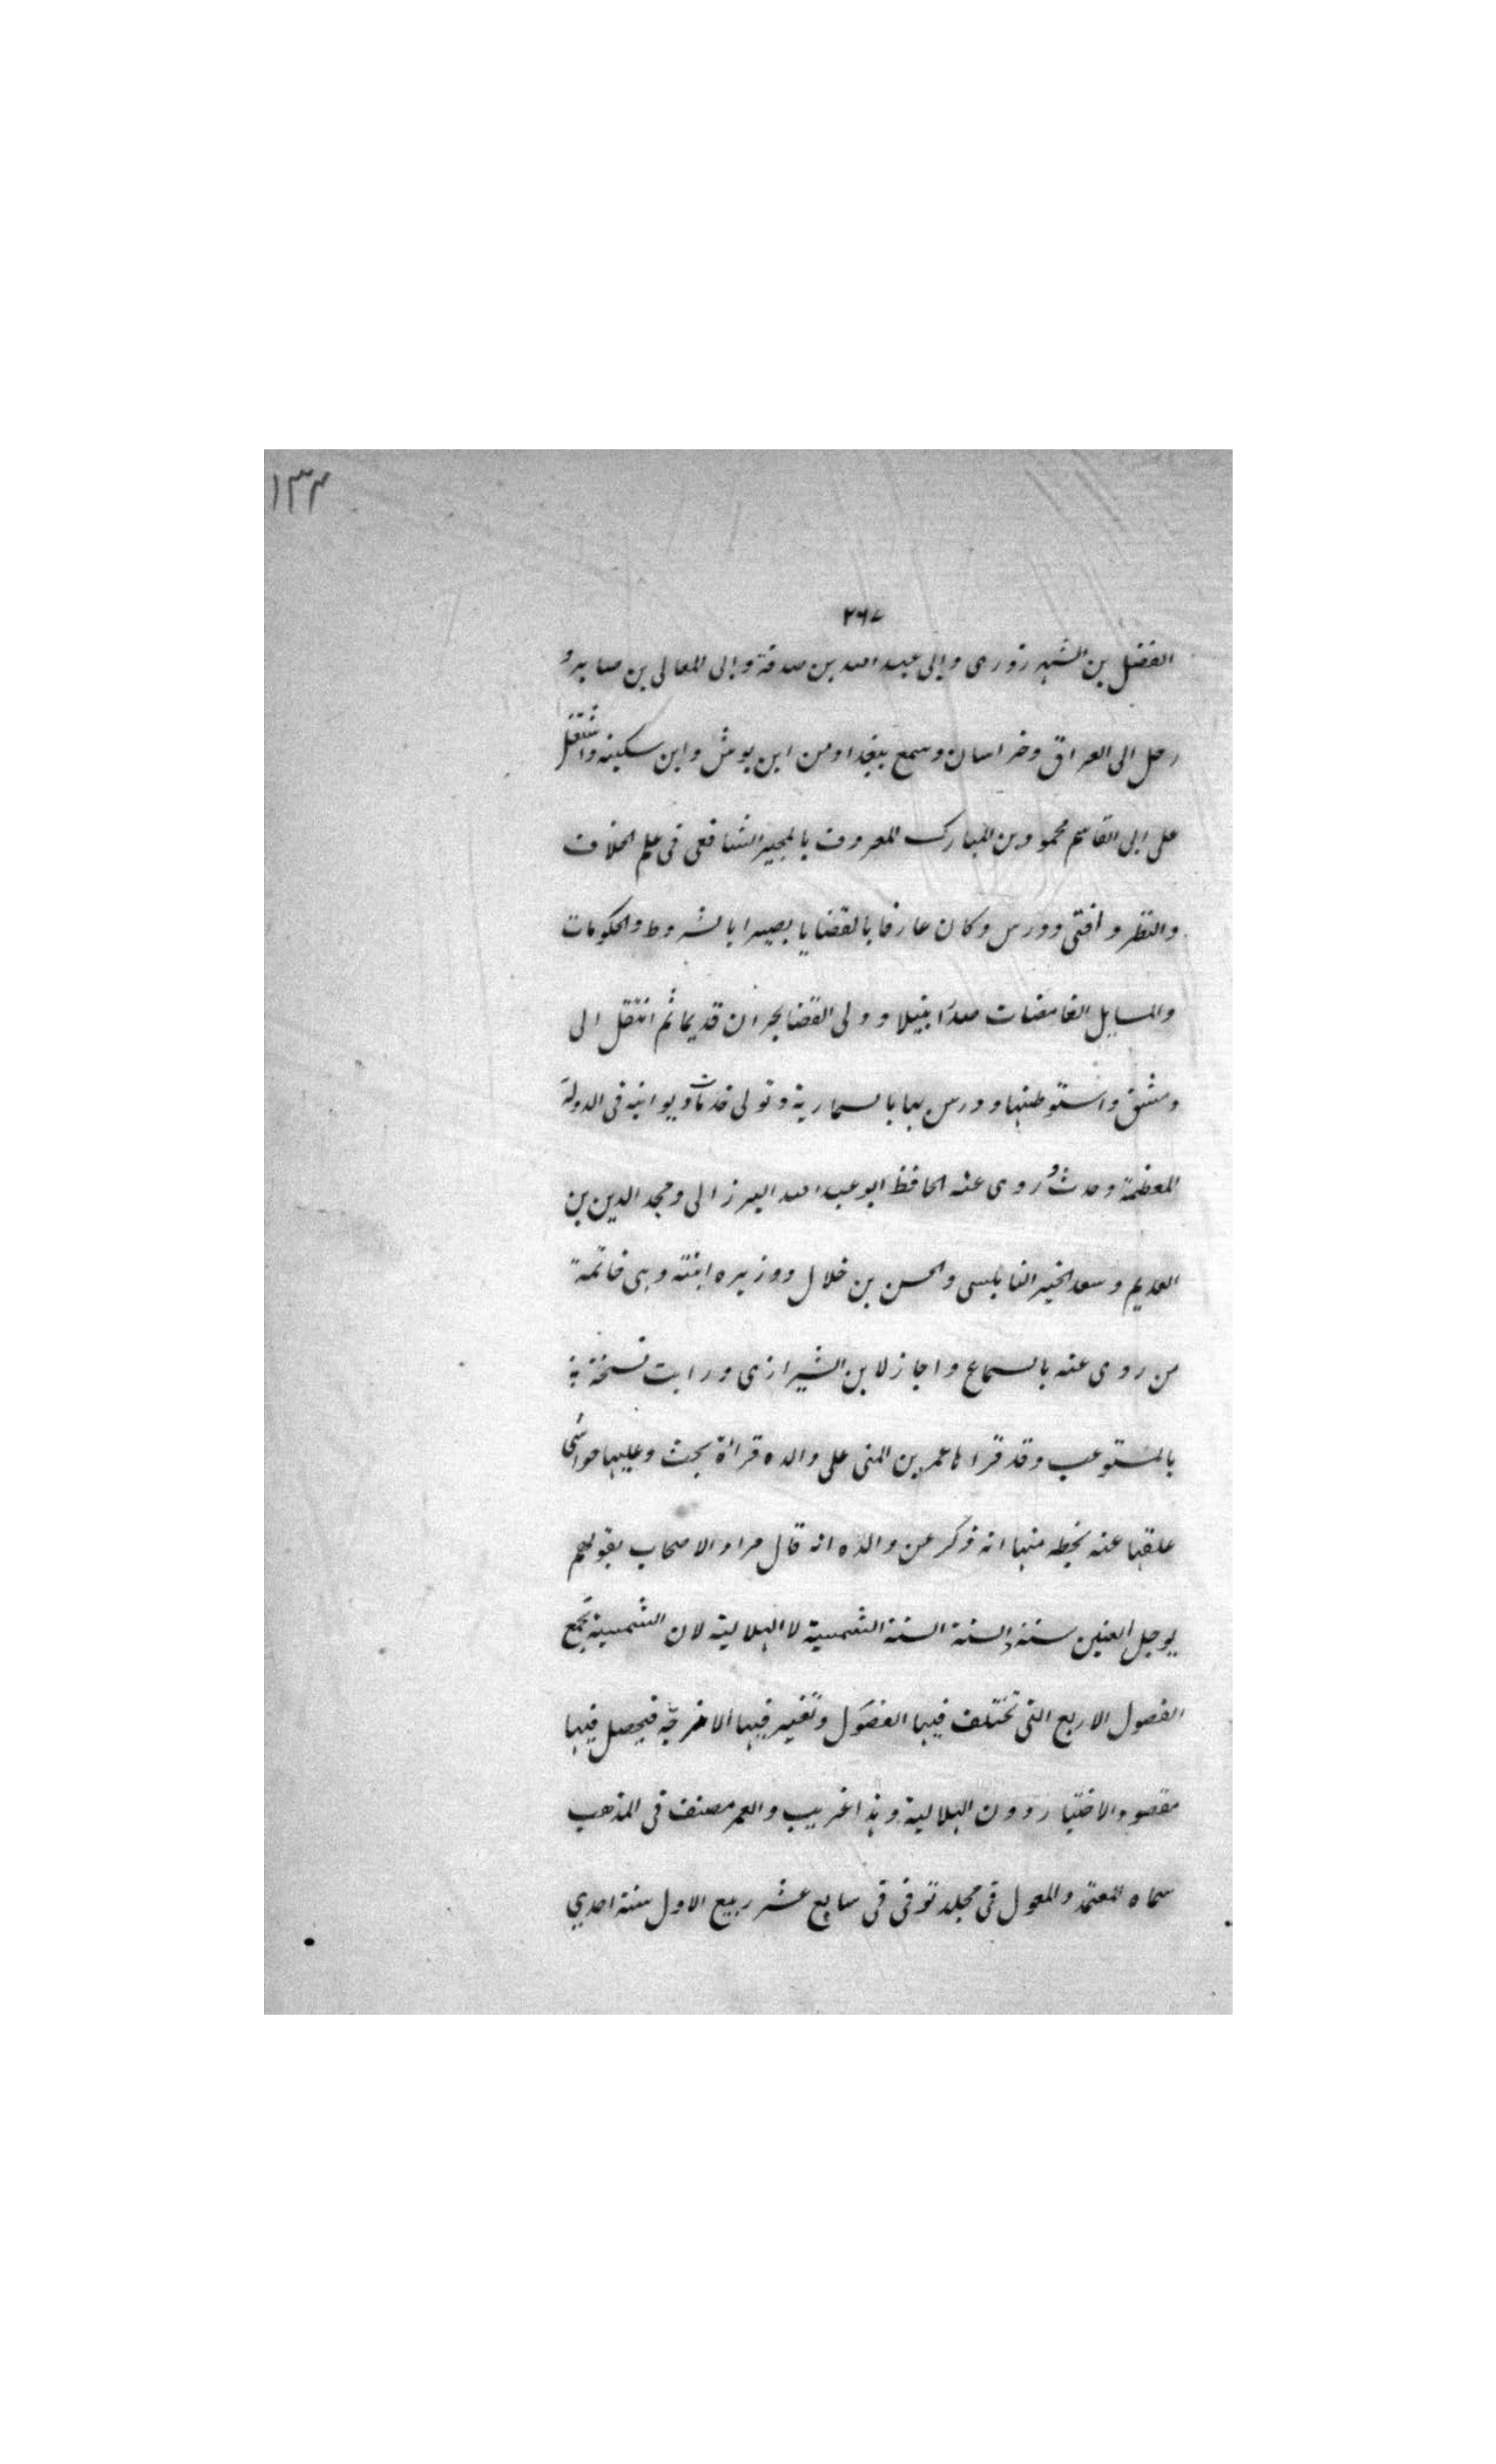 ١٣٣
٢٦٧
الفضل بن الشهرزورى وابى عبد الله بن صدقة وابى المعالى بن صابر و
رحل الى العراق وخراسان وسمع ببغداد من ابن بوش وابن سكينه واشتغل
على ابى القاسم محمود بن المبارك المعروف بالمجير الشافعى فى علم الخلاف
والنظر وافتى ودرس وكان عارفا بالقضايا بصيرا بالشروط والحكومات
والمسايل الغامضات صدرا نبيلا وولى القضا بحران قديما ثم انتقل الى
دمشق واستوطنها ودرس بها بالسمارية وتولى خدمات ديوانيه فى الدولة
المعظمة وحدث وروى عنه الحافظ ابو عبد الله البرزالى ومجد الدين بن
العديم وسعد الخير النابلسى والحسن بن خلال ووزيره ابنته وهى خاتمة
من روى عنه بالسماع واجاز لابن الشيرازى ورايت نسخة
بالمستوعب وقد قراها عمر بن المنى على والده قراة بحث وعليها حواشى
علقها عنه بخطه منها انه ذكر عن والده انه قال مراد الاصحاب بقولهم
يوجل العنين سنة والسنة السنة الشمسية لا الهلالية لان الشمسية تجمع
الفصول الاربع التى تختلف فيها الفصول وتغير فيها الامزجة فيحصل فيها
مقصود الاختبار دون الهلالية وهذا غريب والعمر مصنف فى المذهب
سماه المعتمد والمعول فى مجلد توفى فى سابع عشر ربيع الاول سنة احدي